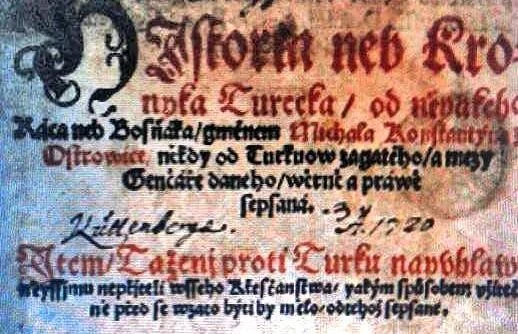 Hystoria neb Kro-
nyka Turecka / od negakeho
Ráca neb Bosňáka / gménem Michala Konstantyna z
Ostrowice, někdy od Turkuow zagatého / a mezy
Genčáře daneho / wěrně a práwě
sepsaná.
Kuttenberga. A. 1720
Item / Taženj proti Turku nayuhlaw
neyssimu nepřiteli wsseho Křesťanstwa / yakým spůsobem
ně před se wzato býti by mělo / odtehož sepsané.